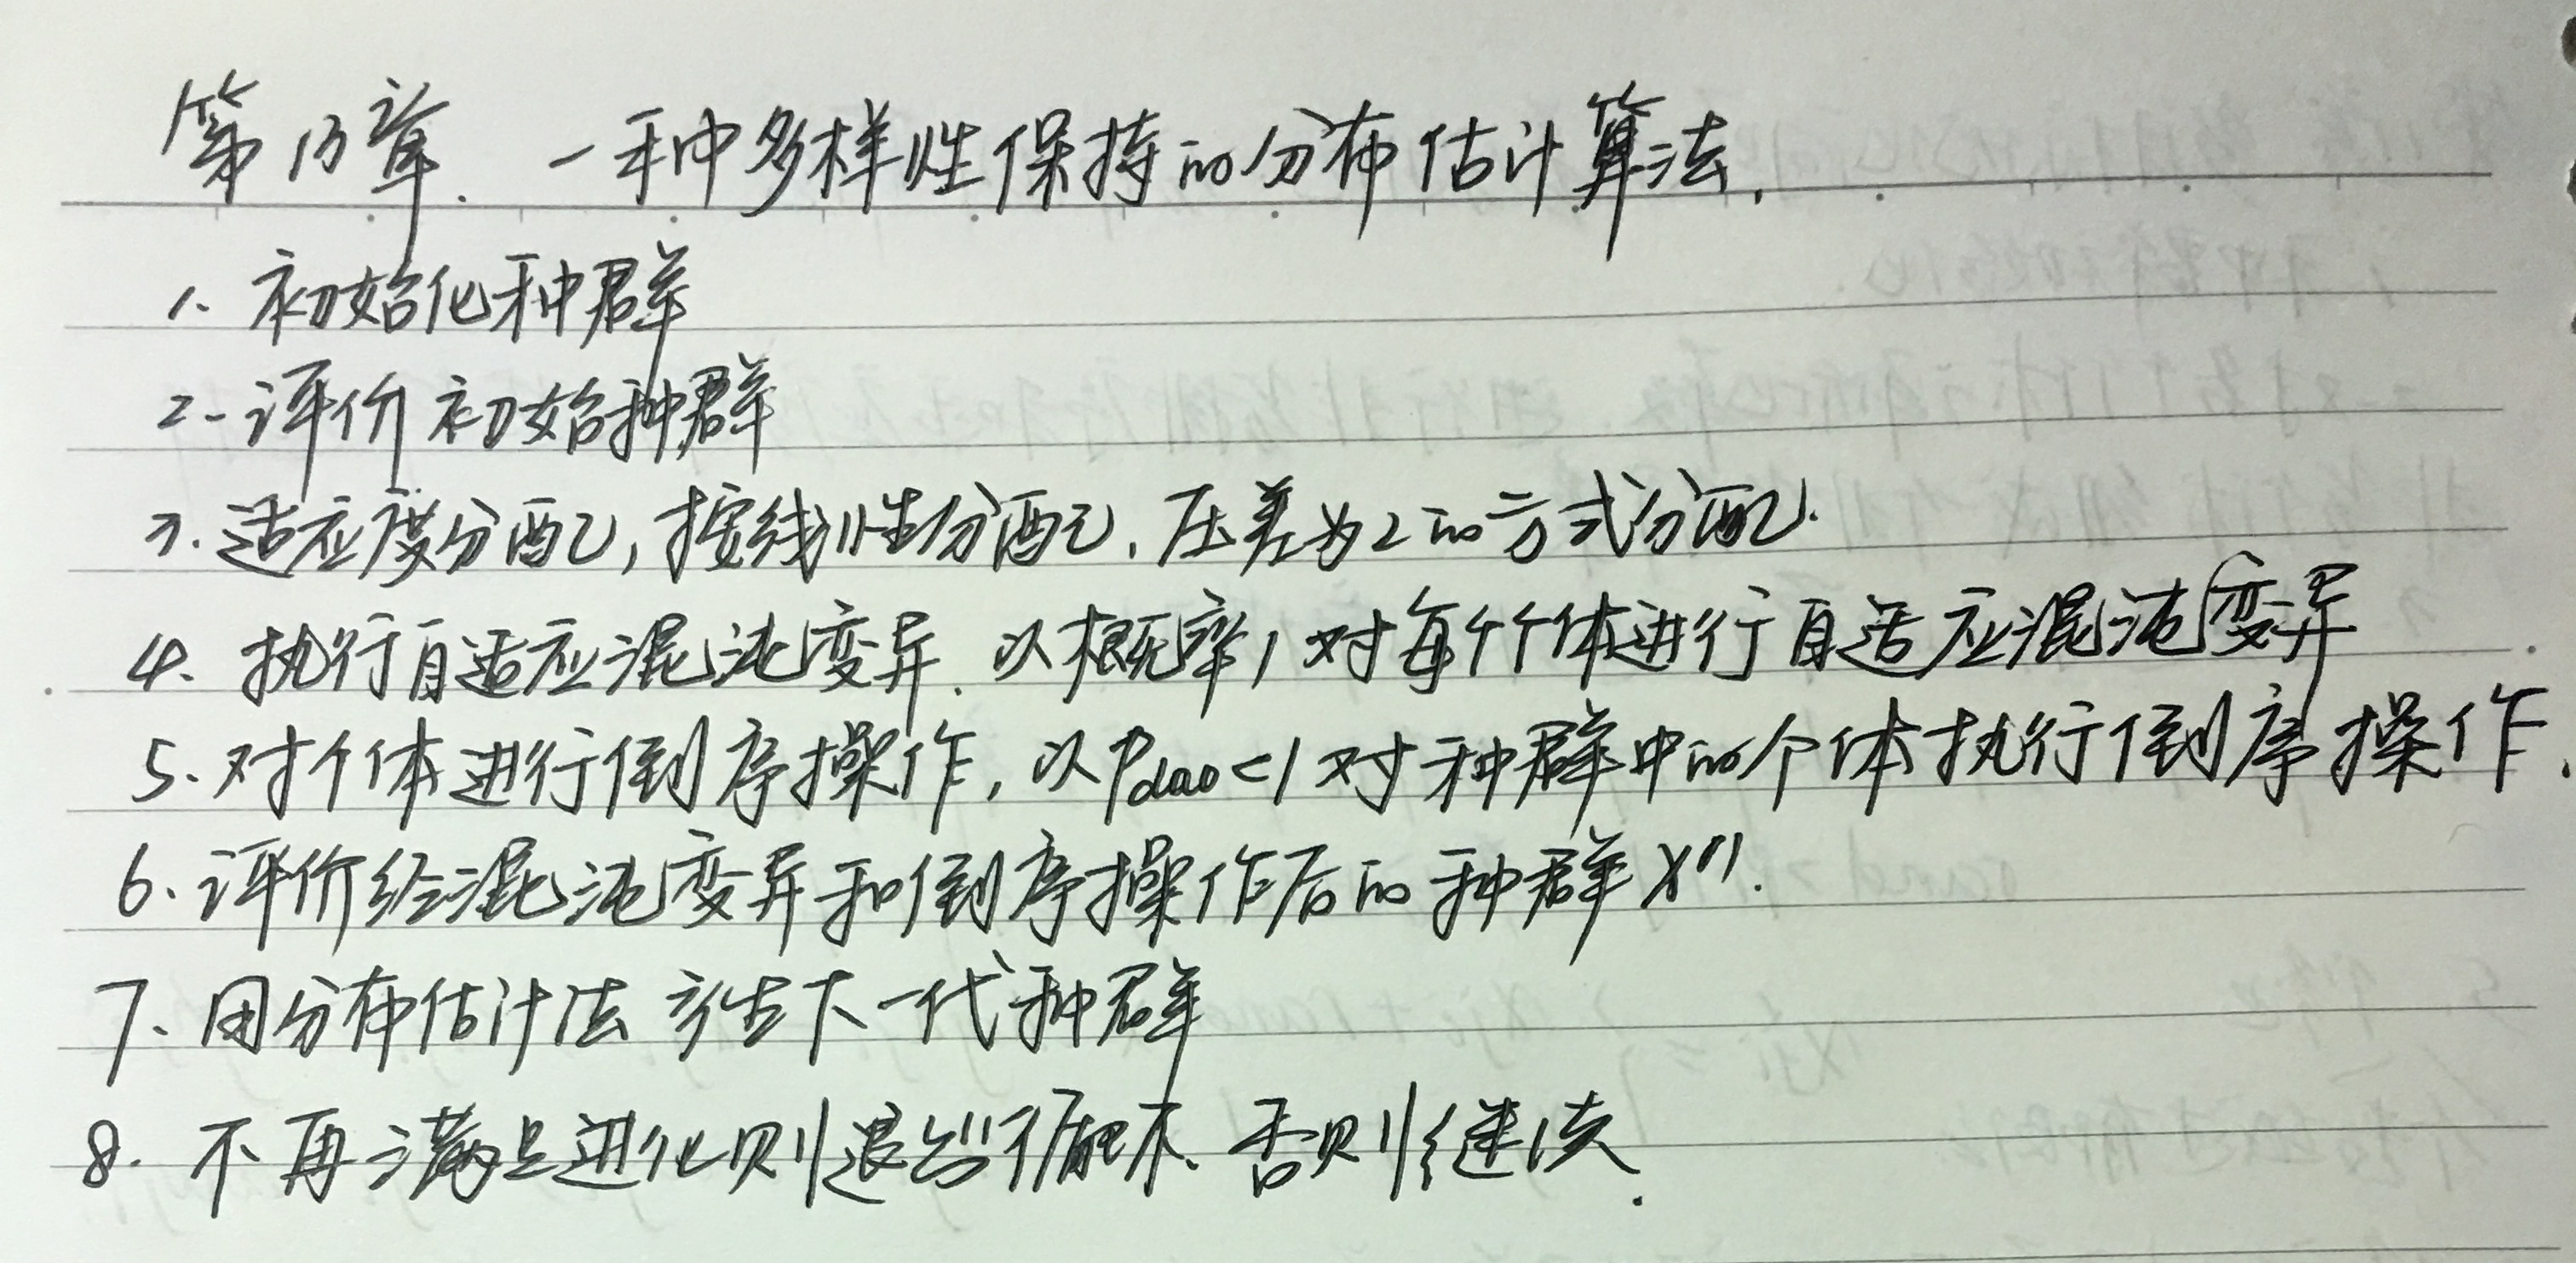 第13章. 一种多样性保持的分布估计算法.
1. 初始化种群
2. 评价初始种群
3. 适应度分配, 按线性分配, 压差为2的方式分配.
4. 执行自适应混沌变异. 以概率1对每个个体进行自适应混沌变异
5. 对个体进行倒序操作, 以Pdao<1对种群中的个体执行倒序操作.
6. 评价经混沌变异和倒序操作后的种群X'''.
7. 用分布估计法产生下一代种群
8. 不再满足进化则退出循环. 否则继续.